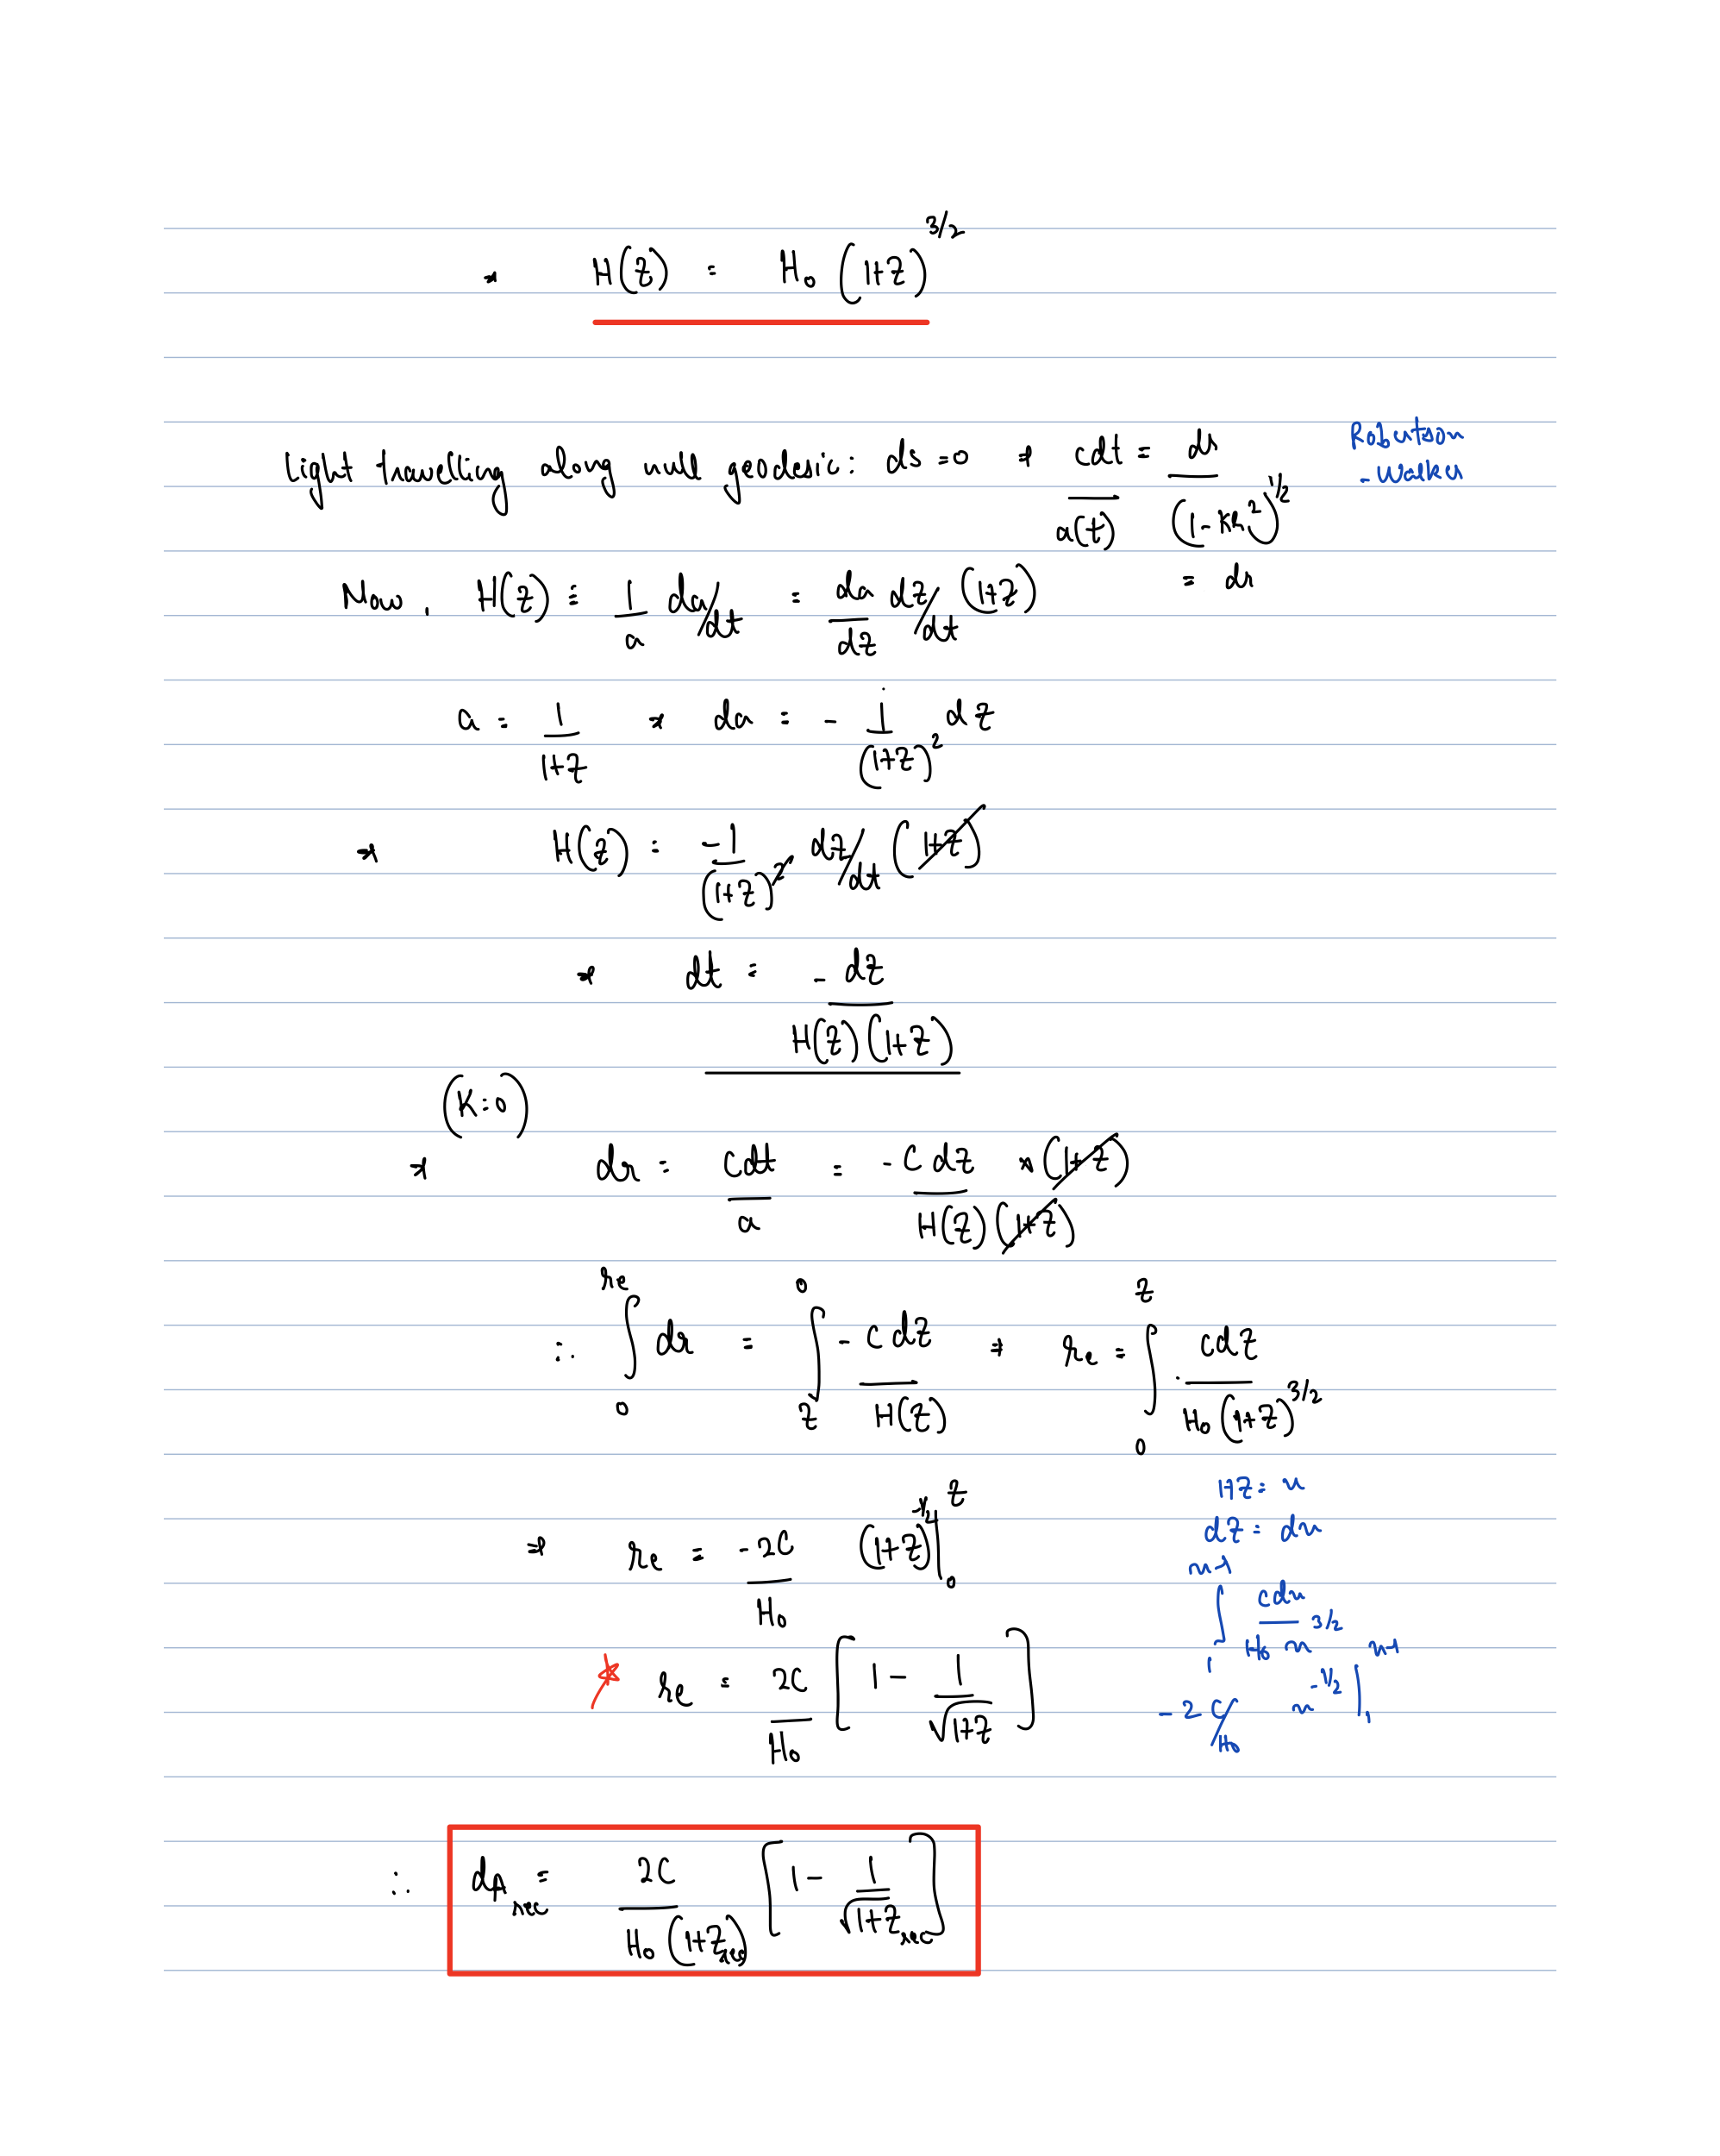 ⇒ H(z) = H₀ (1+z)^{3/2}
Light travelling along null geodesic: ds = 0 ⇒ cdt/a(t) = dr/(1-kr²)^{1/2}
Robertson
- Walker
= dr
Now, H(z) = 1/a da/dt = da/dz dz/dt (1+z)
a = 1/(1+z) ⇒ da = - 1/(1+z)² dz
⇒ H(z) = -1/(1+z)² dz/dt (1+z)
⇒ dt = -dz/(H(z)(1+z))
(k=0)
⇒ dr = cdt/a = -c dz/(H(z)(1+z)) × (1+z)
∴ ∫₀^{re} dr = ∫_z^0 - c dz/H(z) ⇒ re = ∫₀^z cdz/(H₀(1+z)^{3/2})
⇒ re = -2c/H₀ (1+z)^{-1/2} |₀^z
re = 2c/H₀ [1 - 1/√(1+z)]
1+z = u
dz = du
∫₁^{u-1} cdu/(H₀ u^{3/2})
-2 c/H₀ u^{-1/2} |₁^{u-1}
∴ dA_rec = 2c/(H₀(1+z_rec)) [1 - 1/√(1+z_rec)]